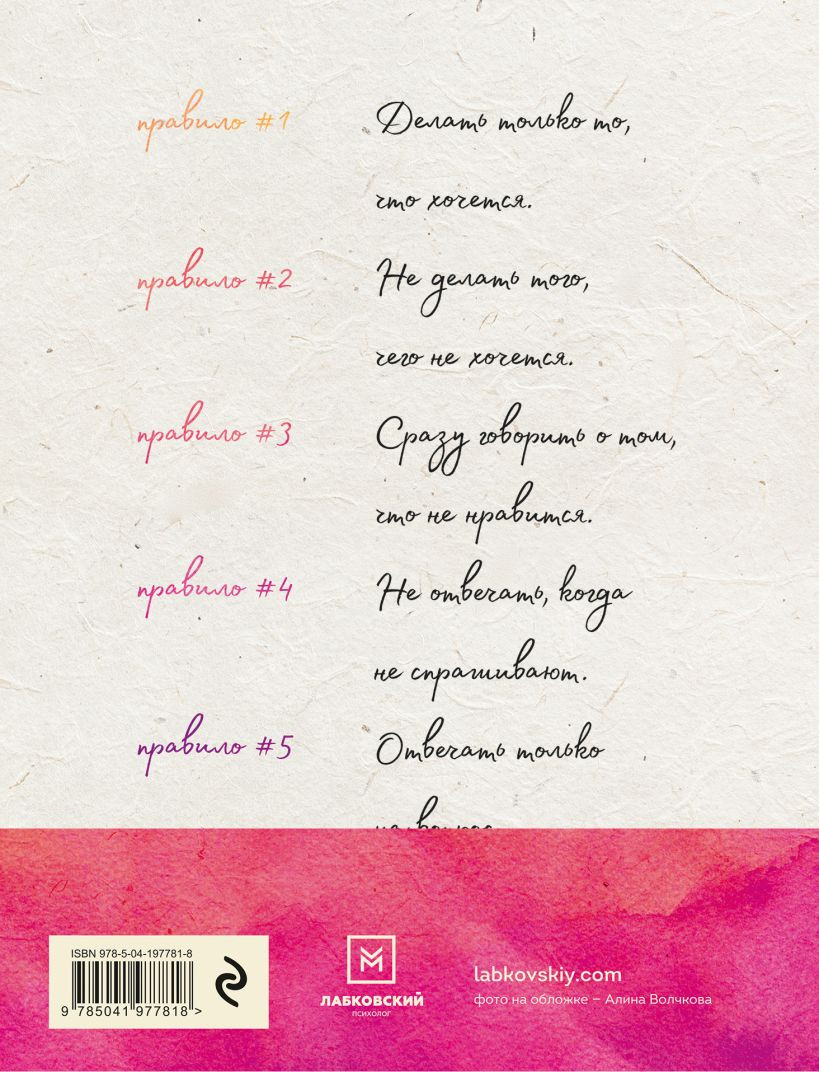 правило #1 Делать только то,
что хочется.
правило #2 Не делать того,
чего не хочется.
правило #3 Сразу говорить о том,
что не нравится.
правило #4 Не отвечать, когда
не спрашивают.
правило #5 Отвечать только
ISBN 978-5-04-197781-8
9 785041 977818 >
ЛАБКОВСКИЙ
ПСИХОЛОГ
labkovskiy.com
фото на обложке – Алина Волчкова